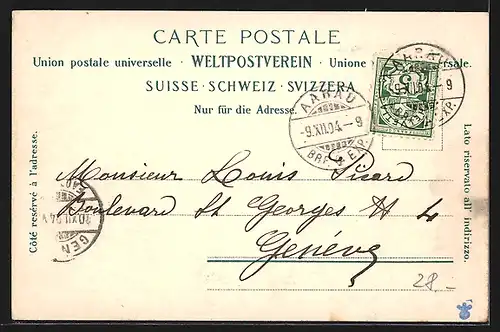 CARTE POSTALE
Union postale universelle · WELTPOSTVEREIN · Unione
SUISSE · SCHWEIZ · SVIZZERA
Nur für die Adresse.
AARAU
-9.XII.04.-9
BRF. EXP.
Côté reservé à l'adresse.
Lato riservato all' indirizzo.
Monsieur Louis Picard
Boulevard St Georges
Genève
28.-